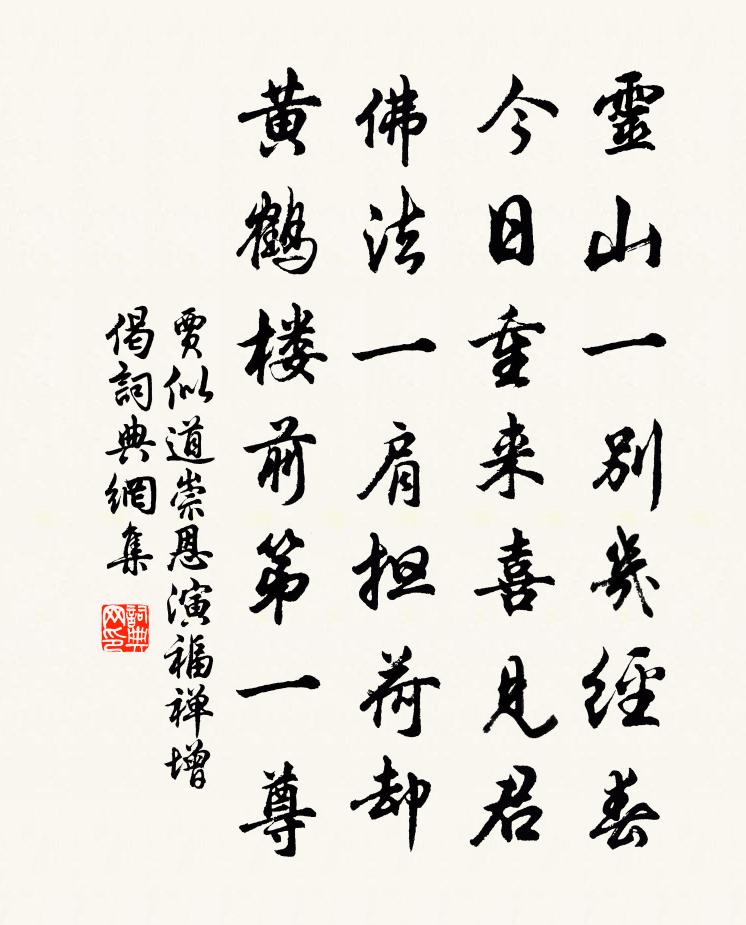 靈山一別幾經春
今日重来喜見君
佛法一肩担荷却
黄鶴楼前第一尊
賈似道崇恩演福禅增
偈詞典網集
詞典网印